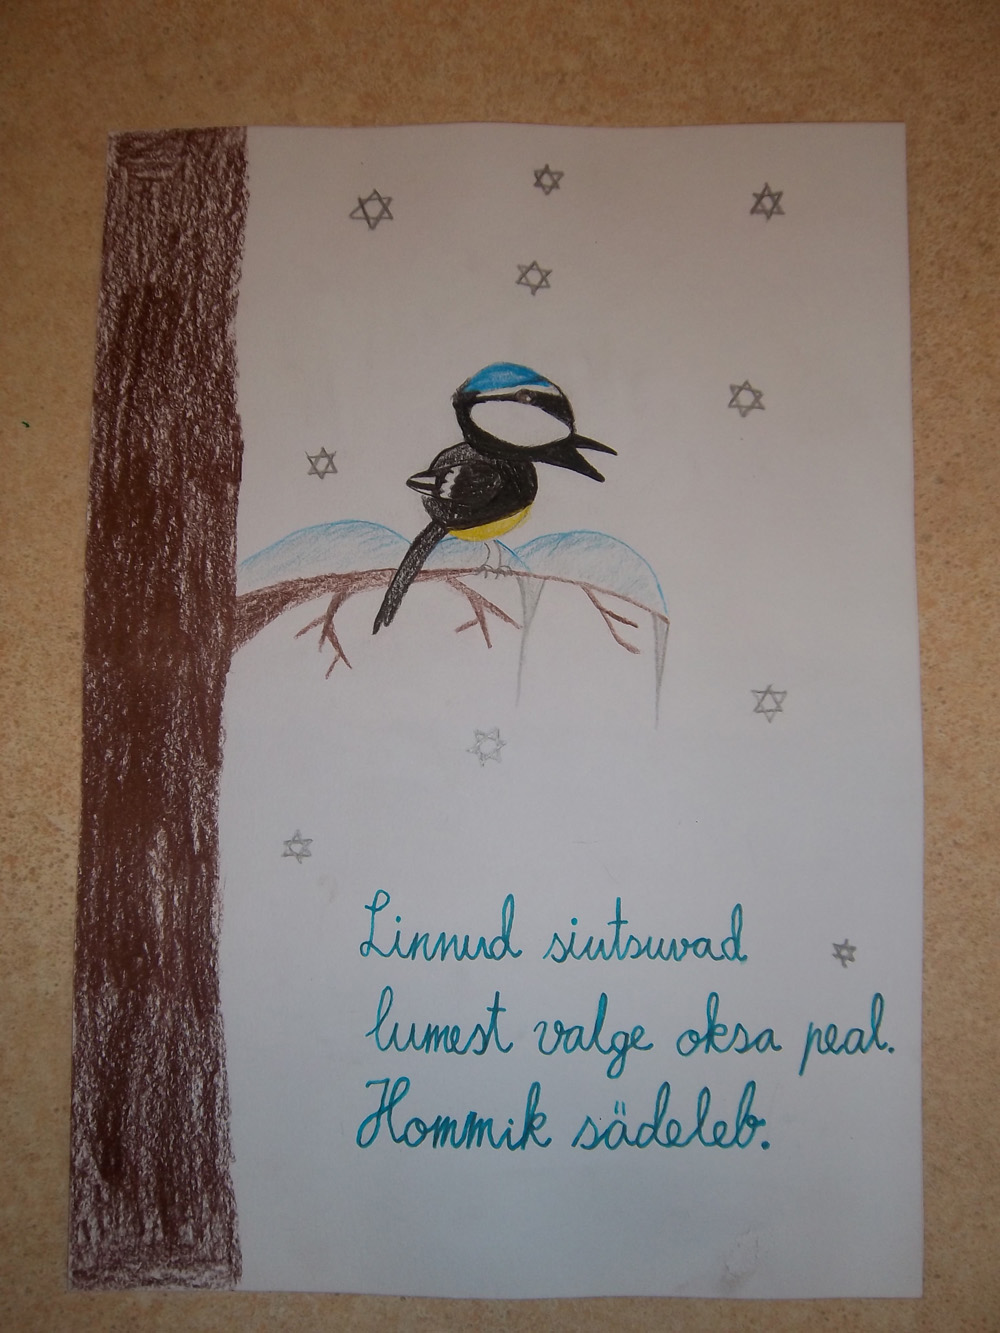 Linnud siutsuvad
lumest valge oksa peal.
Hommik sädeleb.